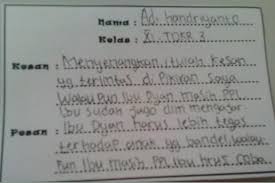 Nama : Adi handriyanto
Kelas : XI TDKR 3
Kesan : Menyenangkan itulah kesan
yg terlintas di Pikiran saya
walau Pun Ibu Dyan masih PPl
Ibu sudah jago dlm mengajar.
Pesan : Ibu Dyan harus lebih tegas
terhadap anak yg bandel walau
Pun Ibu masih PPl Ibu hrus coba